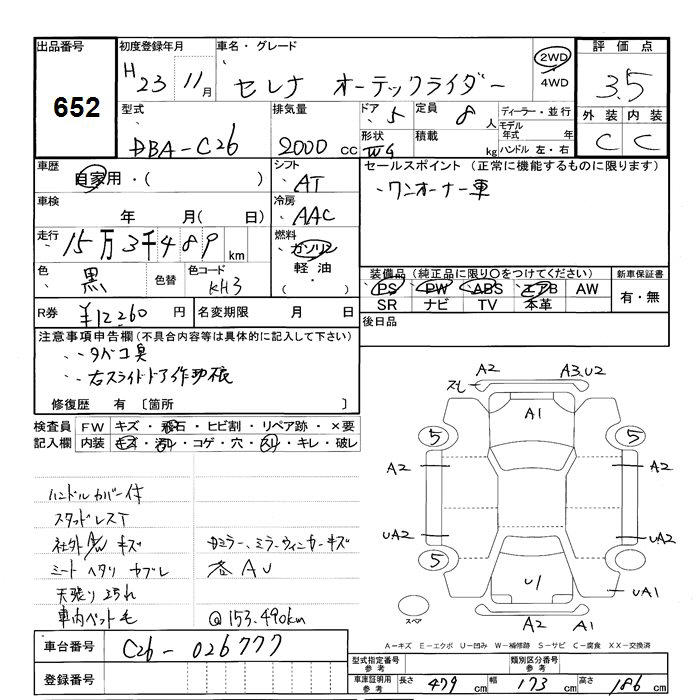 出品番号 初度登録年月 車名・グレード 2WD 評価点
652 H23 11月 セレナ オーテックライダー 4WD 3.5
型式 排気量 ドア 5 定員 8人 ディーラー・並行 外装 内装
DBA-C26 2000cc 形状 積載 kg モデル年式 年 C C
ハンドル 左・右
車歴 シフト セールスポイント(正常に機能するものに限ります)
自家用・( ) AT ・ワンオーナー車
車検 年 月( 日) 冷房 AAC
走行 15万3千489km 燃料 ガソリン
色 黒 色替 色コード KH3 軽油・( )
装備品(純正品に限り○をつけてください) 新車保証書
PS PW ABS エアB AW 有・無
SR ナビ TV 本革
R券 ¥12,260円 名変期限 月 日 後日品
注意事項申告欄(不具合内容等は具体的に記入して下さい)
・タバコ臭
・右スライドドア作動
修復歴 有〔箇所 〕
検査員 FW キズ・飛石・ヒビ割・リペア跡・×要
記入欄 内装 キズ・汚レ・コゲ・穴・スレ・キレ・破レ
ハンドルカバー付
スタッドレスT
社外A/W キズ ミラー、ミラーウィンカーキズ
シートヘタリ 各AU
天張り
車内ペット毛 @153,490km
A2 A3.U2
スレ
A1
5 5
A2 A2
UA2 UA2
5
U1 UA1
スペア A2 A1
A-キズ E-エクボ U-凹み W-補修跡 S-サビ C-腐食 XX-交換済
車台番号 C26-026777
登録番号
型式指定番号 参考 類別区分番号 参考
車庫証明用 参考 長さ 479cm 幅 173cm 高さ 186cm